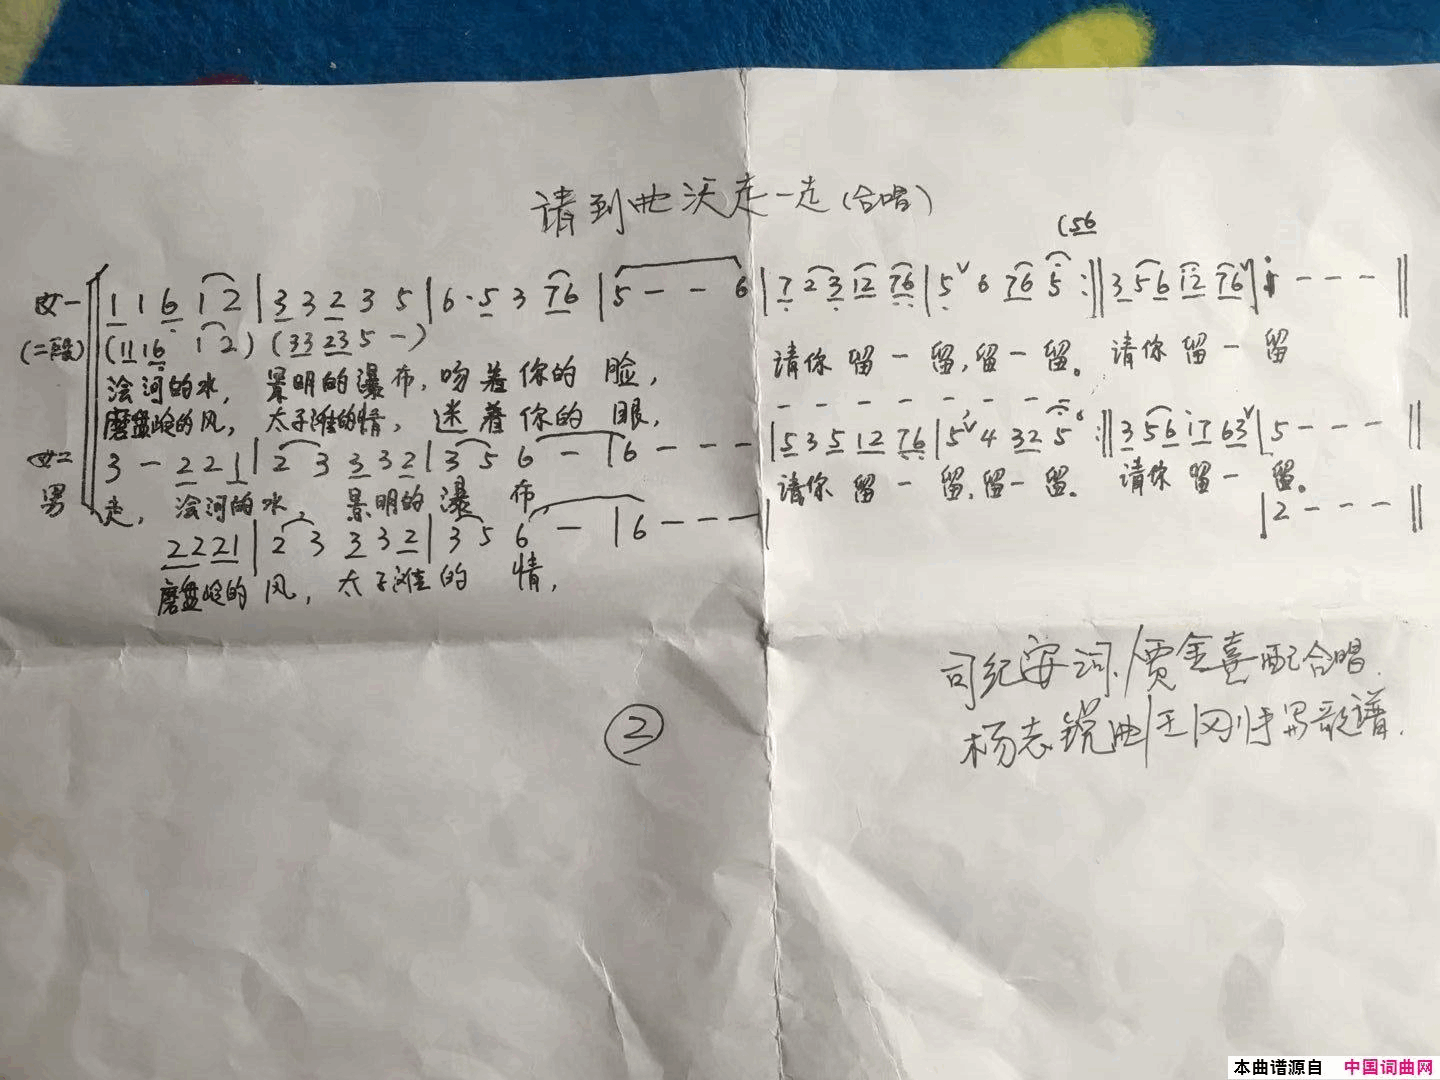 请到曲沃走一走(合唱)
(56
女一 1 1 6 1 2 | 3 3 2 3 5 | 6 · 5 3 76 | 5 - - 6 | 7 2 3 12 76 | 5 ∨ 6 76 5 :‖ 3 56 12 76 ∨ | i - - - ‖
(二段) (11 16 1 2) (33 23 5 -)
请你留一留,留一留。请你留一留
浍河的水,景明的瀑布,吻着你的脸,
磨盘岭的风,太子滩的情,迷着你的眼,
女二 3 - 2 2 1 | 2 3 3 3 2 | 3 5 6 - | 6 - - - | 5 3 5 12 76 | 5 ∨ 4 32 5 :‖ 3 56 17 63 ∨ | 5 - - - ‖
男 走,浍河的水,景明的瀑布, 请你留一留,留一留。请你留一留。
2221 | 2 3 3 3 2 | 3 5 6 - | 6 - - - | | 2 - - - ‖
磨盘岭的风,太子滩的情,
司纪安词/贾金喜配合唱.
杨志锐曲/王
歌谱.
②
本曲谱源自 中国词曲网